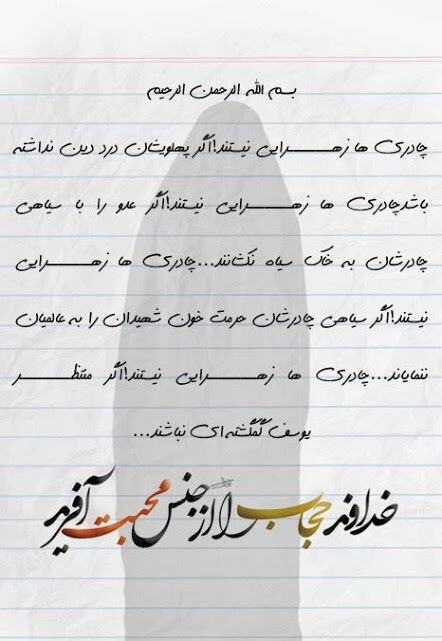 بسم الله الرحمن الرحیم
چادری ها زهـــرایی نیستند!اگر پهلویشان درد دین نداشته
باشد‌چادری ها زهـــرایی نیستند!اگر عدو را با سیاهی
چادرشان به خاک سیاه نکشانند...چادری ها زهـــرایی
نیستند!اگر سیاهی چادرشان حرمت خون شهیدان را به عالمیان
ننمایاند...چادری ها زهـــرایی نیستند!اگر منتظـــر
یوسف گمگشته‌ای نباشند...
خداوند حجاب را از جنس محبت آفرید